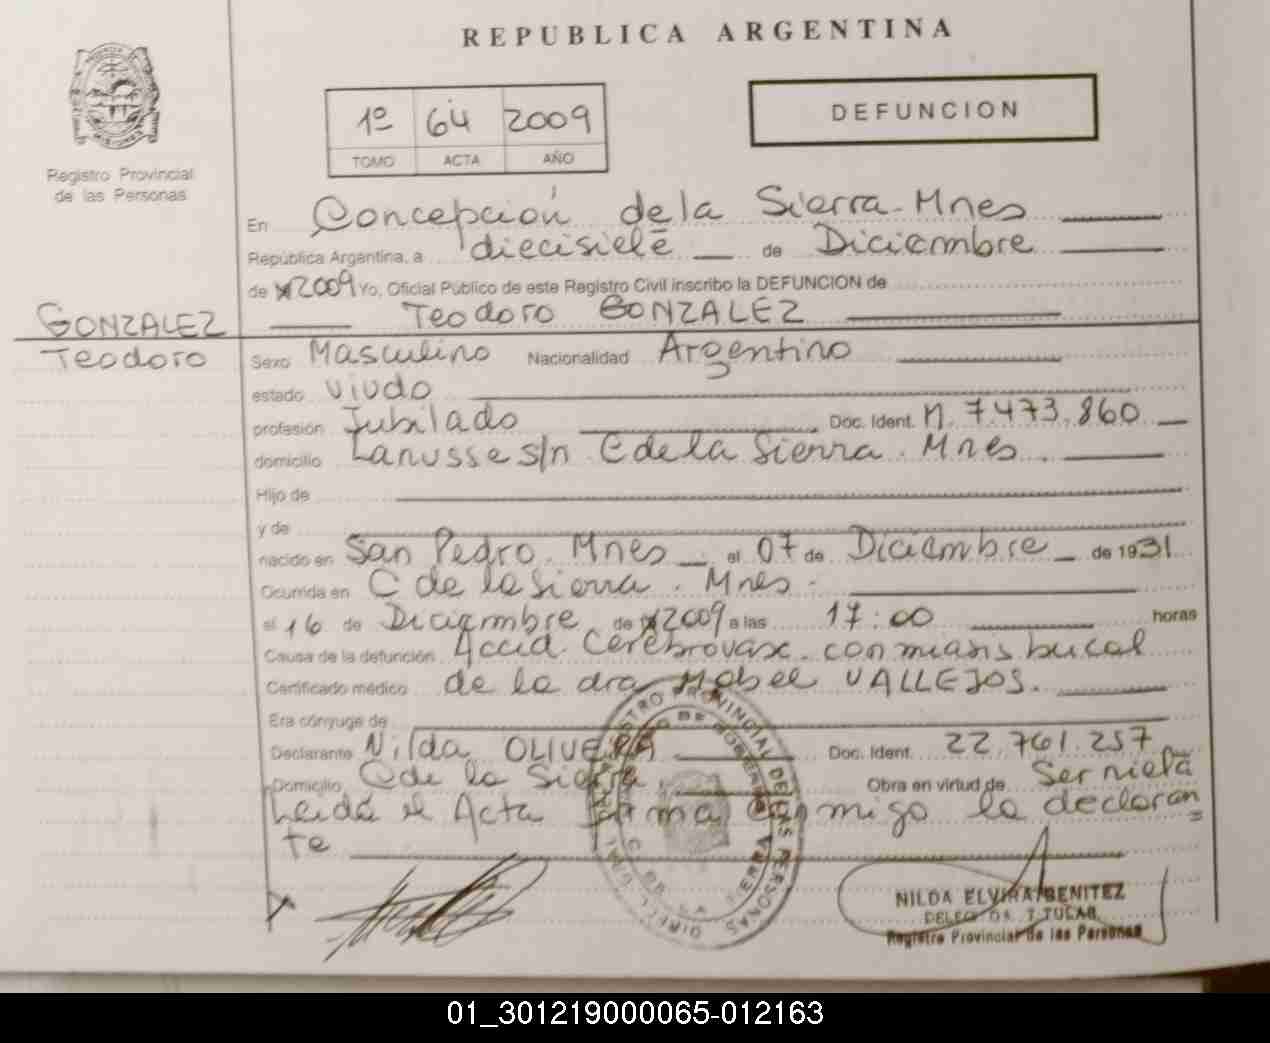 REPUBLICA ARGENTINA
1º 64 2009
TOMO ACTA AÑO
DEFUNCION
Registro Provincial
de las Personas
En Concepción de la Sierra - Mnes
República Argentina, a diecisiete de Diciembre
de 2009 Yo, Oficial Público de este Registro Civil inscribo la DEFUNCION de
GONZALEZ Teodoro GONZALEZ
Teodoro Sexo Masculino Nacionalidad Argentino
estado viudo
profesión Jubilado Doc. Ident. M. 7.473.860
domicilio Lanusse s/n C de la Sierra. Mnes
Hijo de
y de
nacido en San Pedro. Mnes el 07 de Diciembre de 1931
Ocurrida en C de la Sierra. Mnes.
el 16 de Diciembre de 2009 a las 17:00 horas
Causa de la defunción Accid. Cerebrovasc. con bucal
Certificado médico de la dra Mabel VALLEJOS.
Era cónyuge de
Declarante Nilda OLIVERA Doc. Ident. 22.761.257
Domicilio C de la Sierra Obra en virtud de Ser nieta
Leida el Acta firma conmigo la declaran=
te
NILDA ELVIRA BENITEZ
Registro Provincial de las Personas
01_301219000065-012163